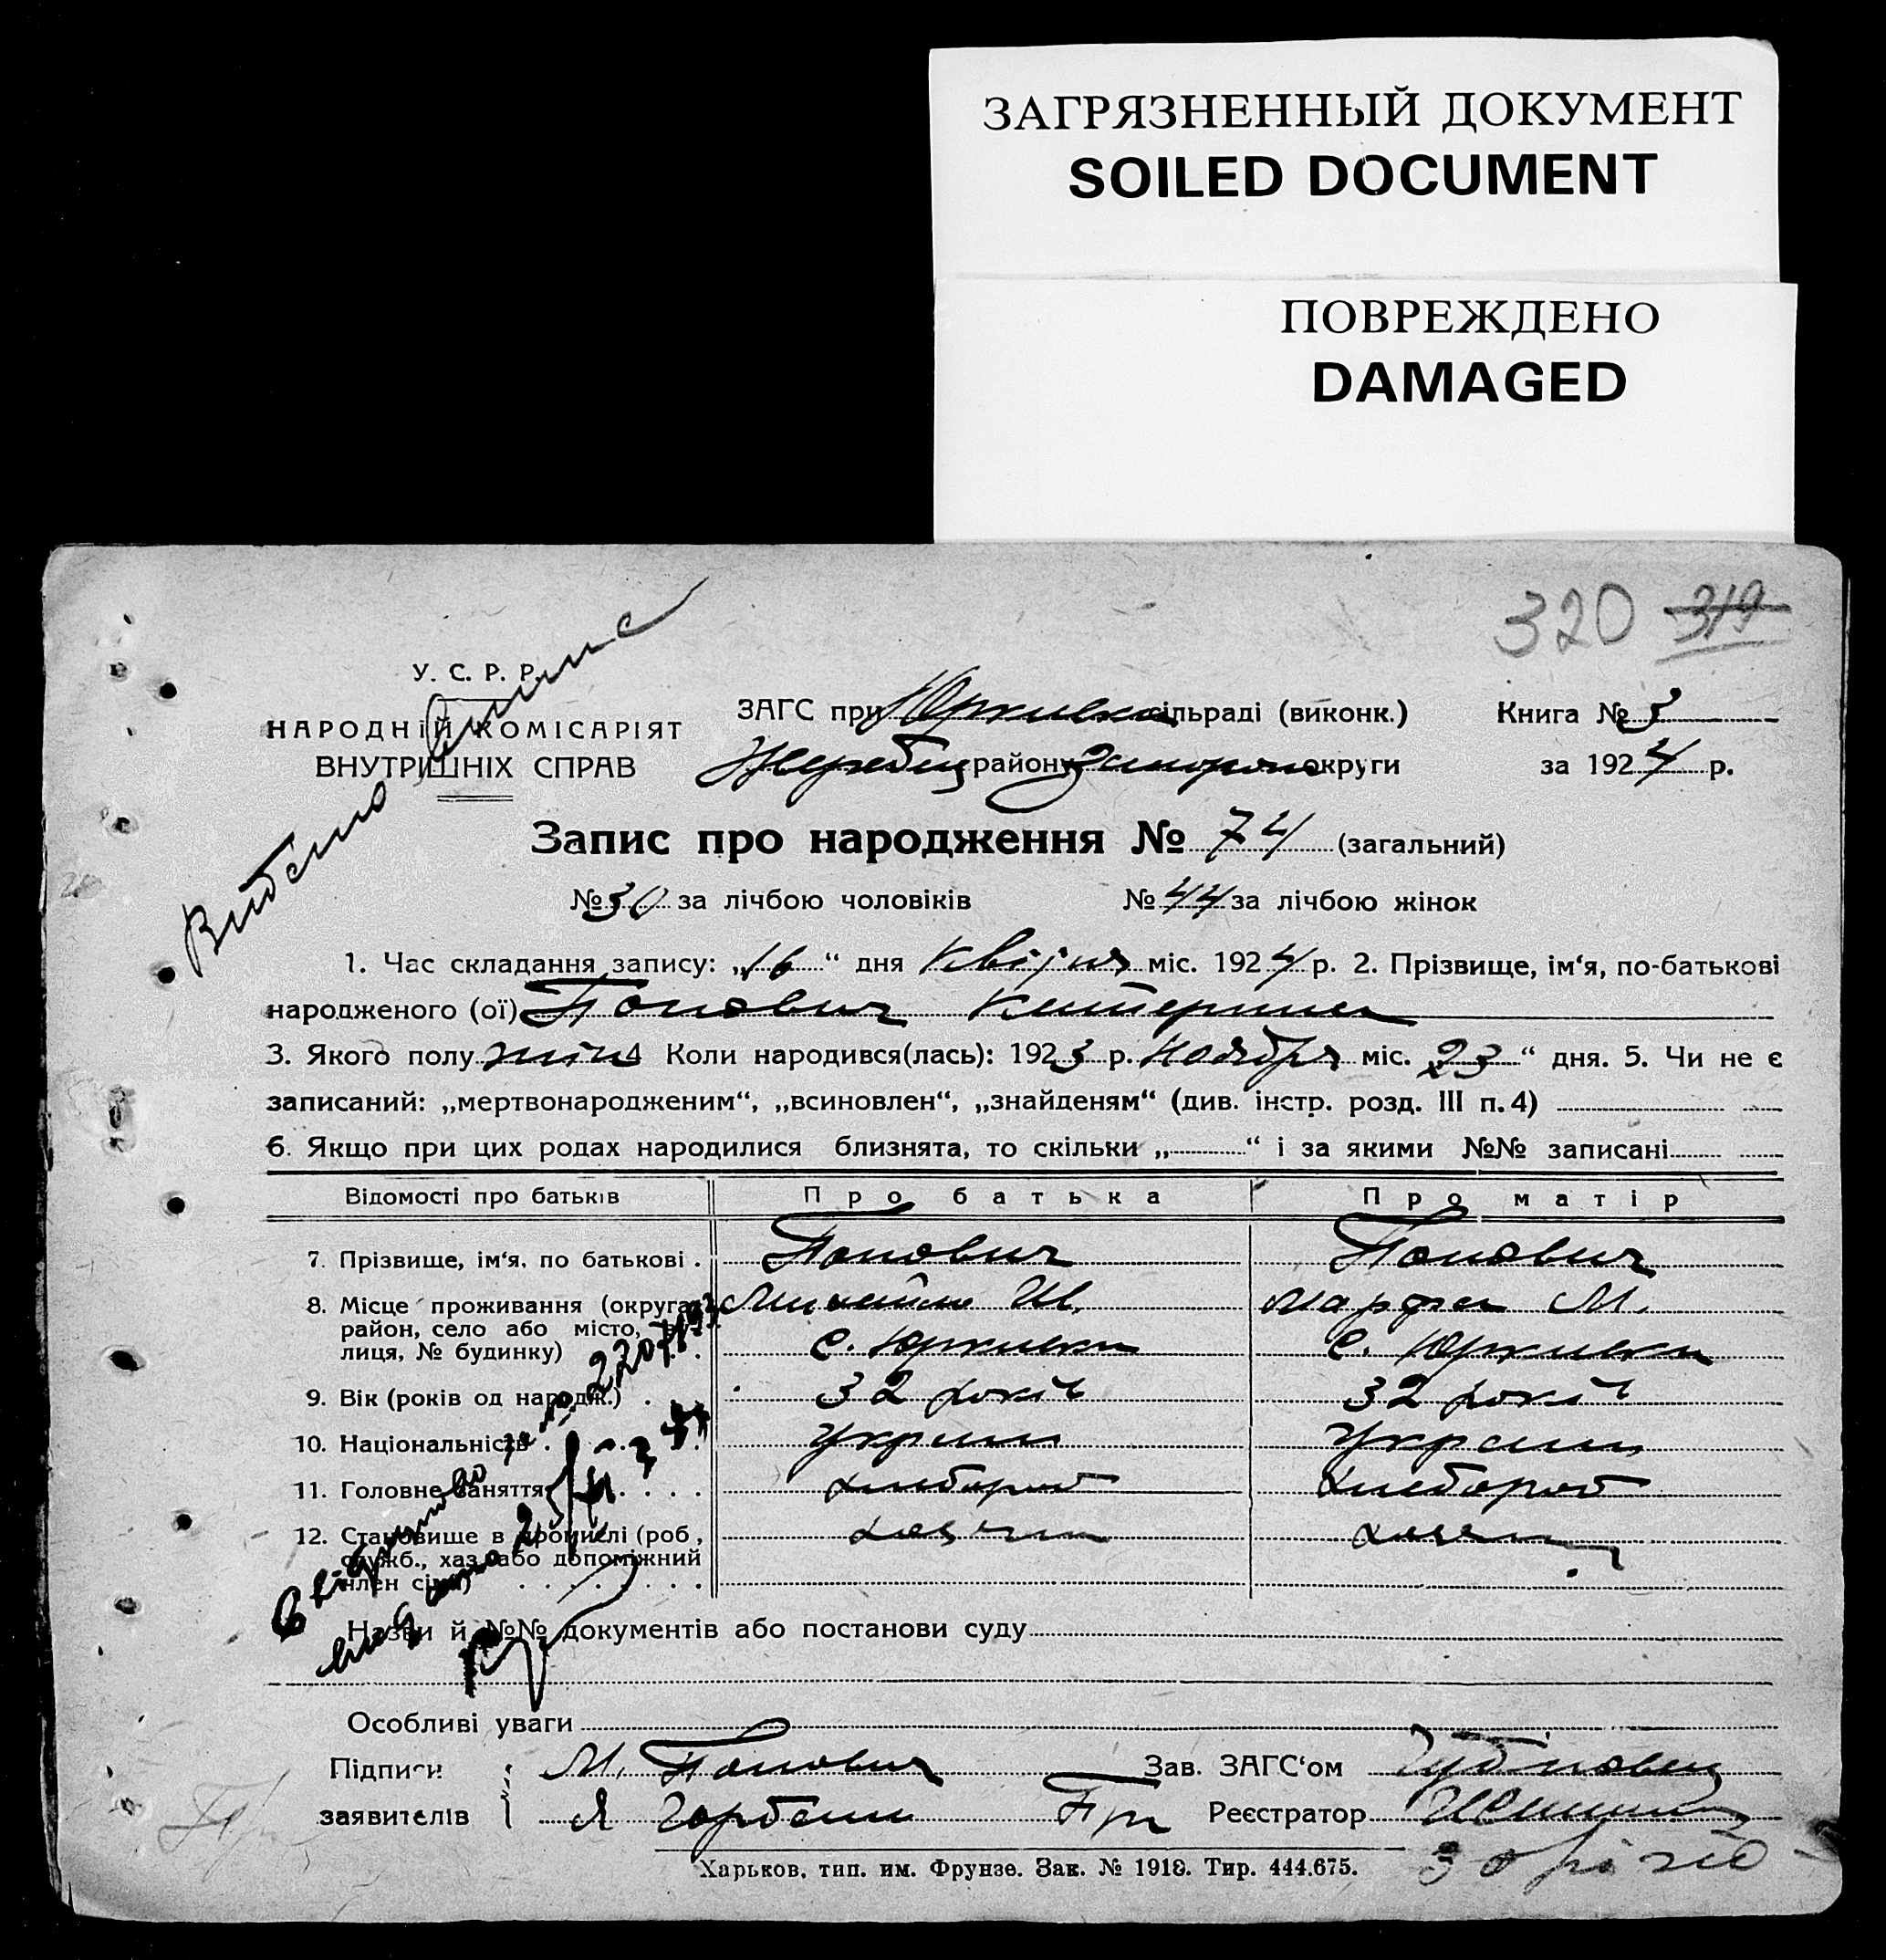 ЗАГРЯЗНЕННЫЙ ДОКУМЕНТ
SOILED DOCUMENT
ПОВРЕЖДЕНО
DAMAGED
320 319
У. С. Р. Р.
НАРОДНІЙ КОМІСАРІЯТ
ВНУТРІШНІХ СПРАВ
Видано
ЗАГС при Юрківськ сільраді (виконк.) Книга № 3
Жеребец району Запорож округи за 1924 р.
Запис про народження № 74 (загальний)
№ 30 за лічбою чоловіків № 44 за лічбою жінок
1. Час складання запису: „16“ дня квітня міс. 1924 р. 2. Прізвище, ім‘я, по-батькові
народженого (ої) Попович Катерина
3. Якого полу жін 4 Коли народився(лась): 1923 р. ноября міс. „23“ дня. 5. Чи не є
записаний: „мертвонародженим“, „всиновлен“, „знайденям“ (див. інстр. розд. III п. 4)
6. Якщо при цих родах народилися близнята, то скільки „ “ і за якими №№ записані
Відомості про батьків Про батька Про матір
7. Прізвище, ім‘я, по батькові . Попович Попович
8. Місце проживання (округа, Михайло Ш. Марфа М.
район, село або місто, ву-
лиця, № будинку) с. Юрківка с. Юрківка
9. Вік (років од народж.) 32 років 32 років
10. Національність Украин Украин
11. Головне заняття хлебороб хлебороб
12. Становище в промислі (роб., хазяин хазяин
служб., хаз. або допоміжний
член сім‘ї)
Свідоцтво
видано
Назви й №№ документів або постанови суду
Особливі уваги
Підписи М. Попович Зав. ЗАГС‘ом
заявителів Я Горбань Реєстратор
Харьков, тип. им. Фрунзе. Зак. № 1918. Тир. 444.675.